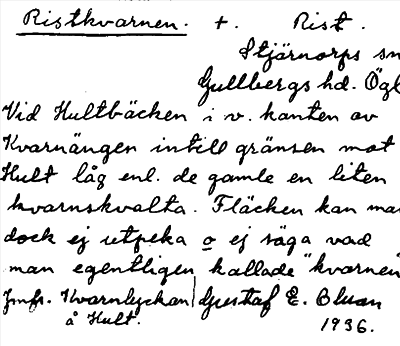 Ristkvarnen. +. Rist.
Stjärnorps sn
Gullbergs hd. Ögl
Vid Hultbäcken i v. kanten av
Kvarnängen intill gränsen mot
Hult låg enl. de gamle en liten
kvarnskvalta. Fläcken kan man
dock ej utpeka o ej säga vad
man egentligen kallade "kvarnen"
Jmfr. Kvarnlyckan
å Hult.
Gustaf E. Bluan
1936.